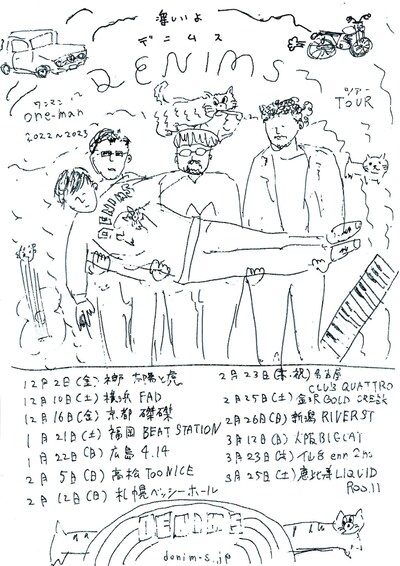 楽しいよ
デニムス
DENIMS
ワンマン
one-man
2022~2023
ツアー
TOUR
DENIMS
12月2日(金) 神戸 太陽と虎
12月10日(土) 横浜 FAD
12月16日(金) 京都 磔磔
1月21日(土) 福岡 BEAT STATION
1月22日(日) 広島 4.14
2月5日(日) 高松 TOONICE
2月12日(日) 札幌ベッシーホール
2月23日(木・祝) 名古屋
CLUB QUATTRO
2月25日(土) 金沢 GOLD CREEK
2月26日(日) 新潟 RIVERST
3月12日(日) 大阪 BIGCAT
3月23日(木) 仙台 enn 2nd
3月25日(土) 恵比寿 LIQUID
ROOM
DENIMS
denim-s.jp